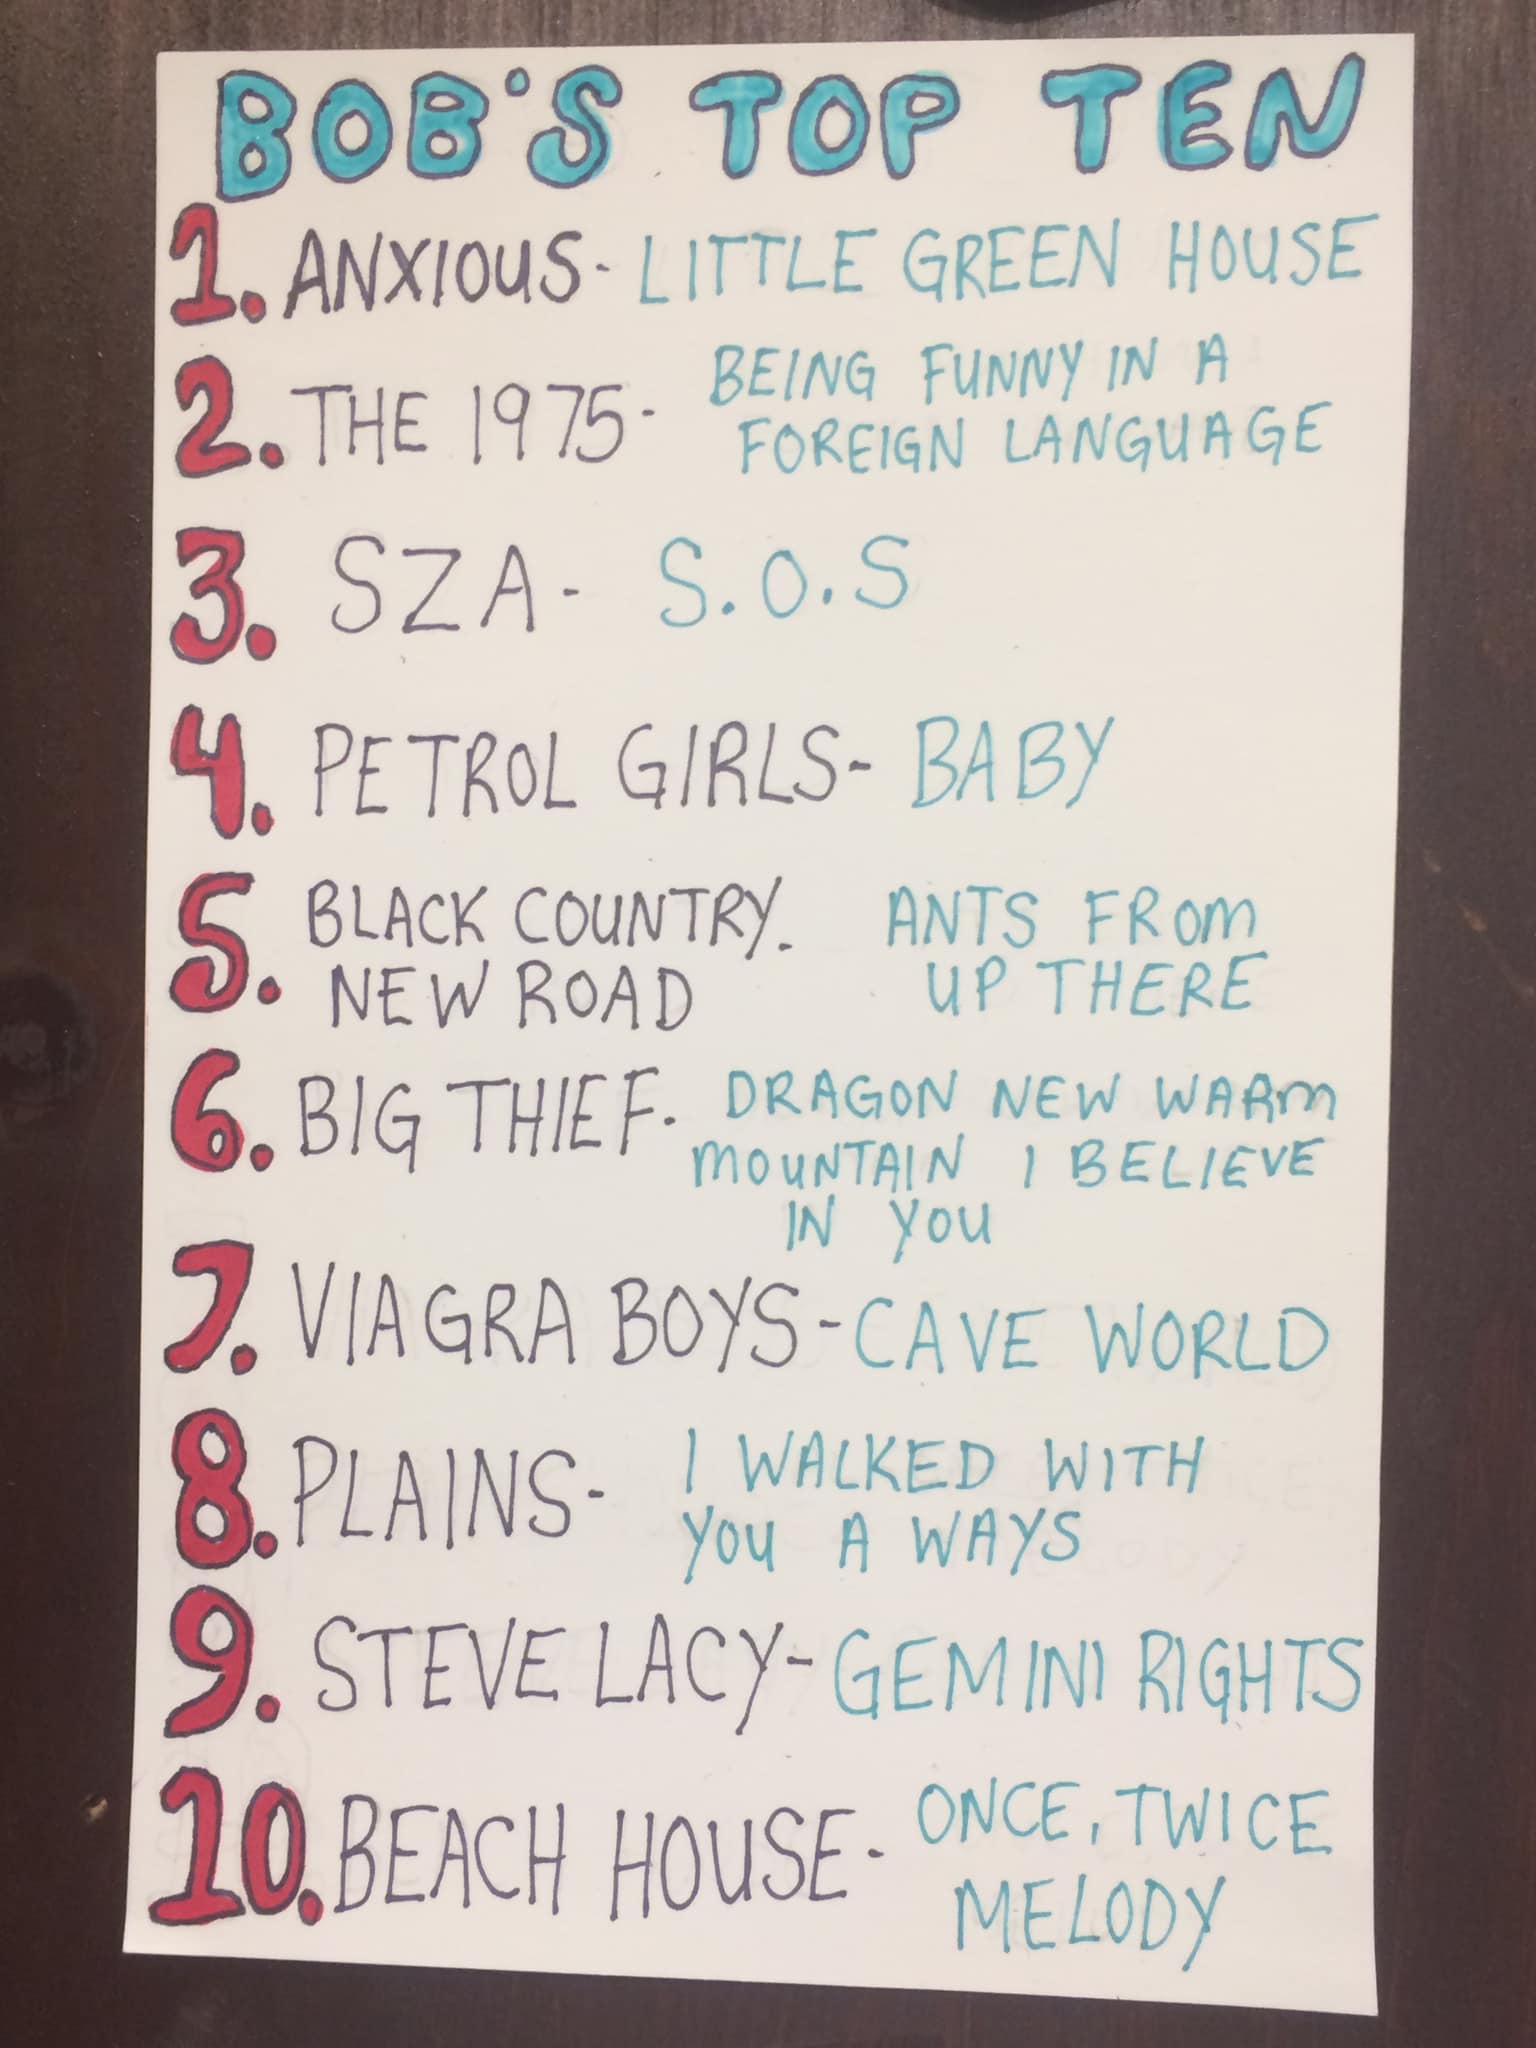 BOB'S TOP TEN
1. ANXIOUS - LITTLE GREEN HOUSE
2. THE 1975 - BEING FUNNY IN A
FOREIGN LANGUAGE
3. SZA - S.O.S
4. PETROL GIRLS - BABY
5. BLACK COUNTRY. ANTS FROM
NEW ROAD UP THERE
6. BIG THIEF - DRAGON NEW WARM
MOUNTAIN I BELIEVE
IN YOU
7. VIAGRA BOYS - CAVE WORLD
8. PLAINS - I WALKED WITH
YOU A WAYS
9. STEVE LACY - GEMINI RIGHTS
10. BEACH HOUSE - ONCE, TWICE
MELODY